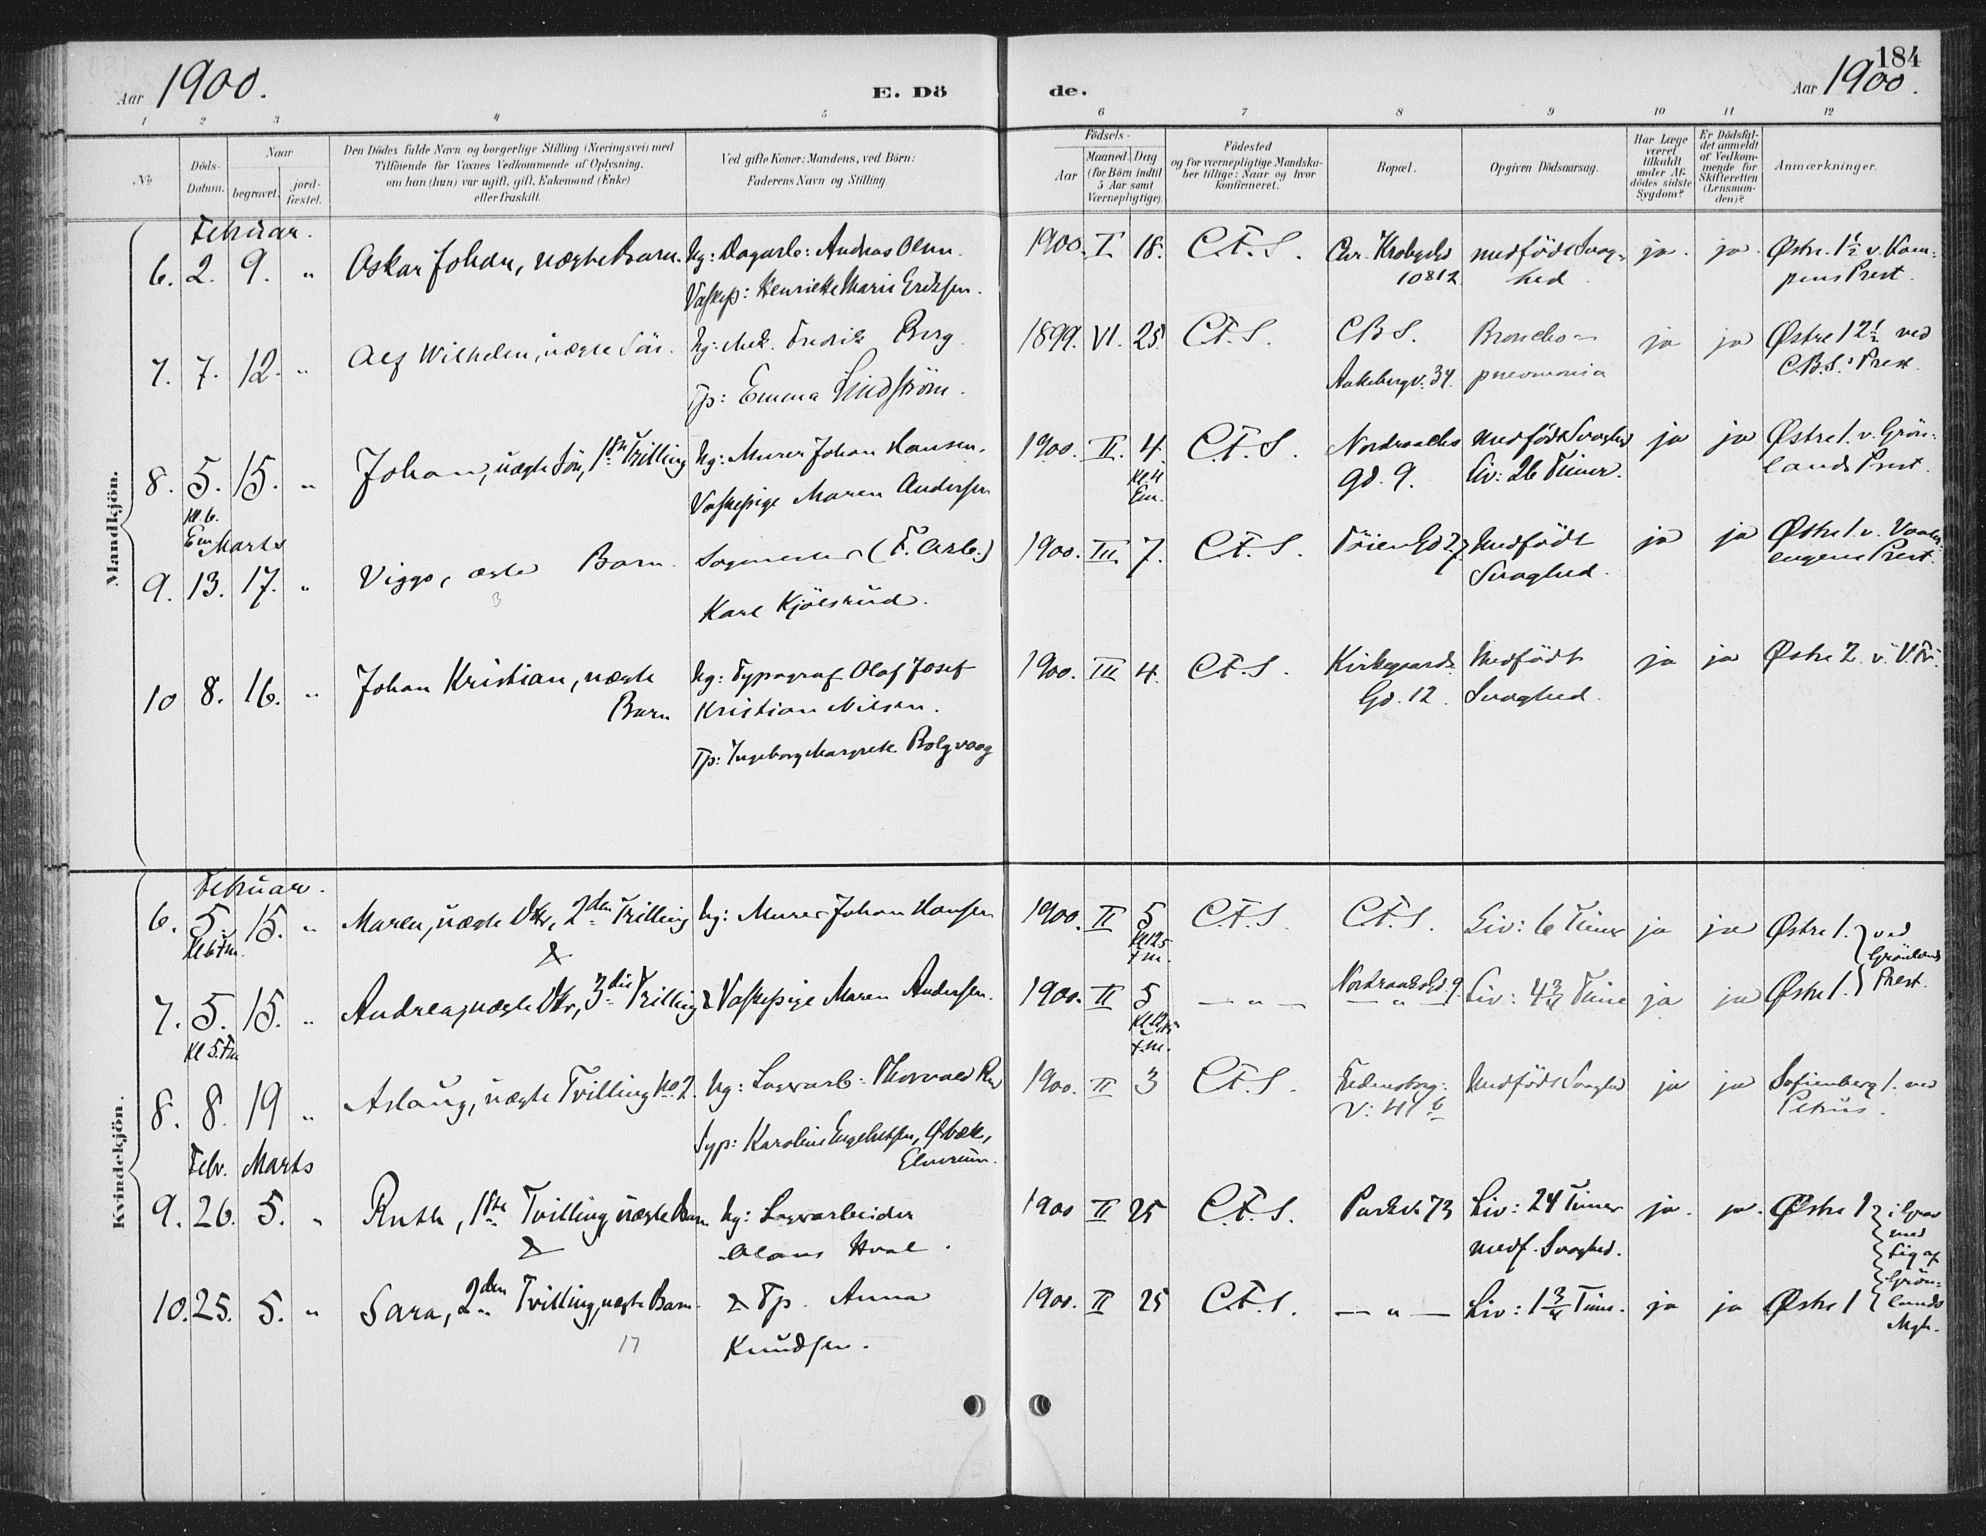 Aar 1900.
E. Dö
de.
184
Aar 1900.
1 2 3 4 5 6 7 8 9 10 11 12
No
Döds-
Datum.
Naar
begravet.
jord-
fæstet.
Den Dödes fulde Navn og borgerlige Stilling (Næringsvei) med
Tilföiende for Voxnes Vedkommende af Oplysning,
om han (hun) var ugift, gift, Enkemand (Enke)
eller fraskilt.
Ved gifte Koner: Mandens, ved Börn:
Faderens Navn og Stilling
Födsels-
Aar
Maaned. Dag
(for Börn indtil
5 Aar samt
Værnepligtige).
Födested
og for værnepligtige Mandska-
ber tillige: Naar og hvor
konfirmeret.
Bopæl.
Opgiven Dödsaarsag.
Har Læge
været
tilkaldt
under Af-
dödes sidste
Sygdom?
Er Dödsfal-
det anmeldt
af Vedkom-
mende for
Skifteretten
(Lensman-
den)?
Anmærkninger.
Mandkjön.
Februar.
6. 2. 9. " Oskar Johan, uægte Barn. Ug: Dagarb: Andreas Olsen. 1900. I 18. C.F.S. Chr. Krohgsgd medfödt Svag- ja. ja. Östre. 1½ v. Kam-
Vaskep: Henriette Marie Eriksen. 10812 hed pens Prest.
7. 7. 12. " Alf Wilhelm, uægte Sön. Ug: Mek. Fredrik Berg. 1899. VI. 25. C.F.S. C.B.S. Broncho- ja ja Östre 12½ ved
Tp: Emma Lindström. Aakebergv. 34. pneumonia C.B.S.s Prest.
8. 5. 15. " Johan, uægte Sön, 1ste Trilling Ug: Murer Johan Hansen. 1900. II. 4. C.F.S. Nordraachs Medfödt Svaghed ja ja Östre 1. v. Grön-
Kl. 6. Em Vaskepige Maren Andersen Kl. 11 Em. gd. 9. Liv: 26 Timer. lands Prest.
Marts
9. 13. 17. " Viggo, ægte Barn. Sagmester (F. Arb.) 1900. III 7. C.F.S. Töien Gd 27 Medfödt ja ja Östre 1. v. Vaaler-
3 Karl Kjölsrud. Svaghed. engens Prest.
10 8. 16. " Johan Kristian, uægte Ug: Typograf Olaf Josef 1900. III 4. C.F.S. Kirkegaards Medfödt ja ja Östre 2. v. V. Fr.
Barn Kristian Nilsen. Gd. 12. Svaghed.
Tp: Ingeborg Margrete Bolgvaag
Kvindekjön.
Februar.
6. 5. 15. " Maren, uægte Dtr, 2den Trilling Ug: Murer Johan Hansen 1900. II 5 C.F.S. C.F.S. Liv: 6 Timer ja ja Östre 1. ved
Kl 6 Fm. & Kl 12 5 Fm. Grönlands
7. 5. 15. " Andrea, uægte Dtr, 3die Trilling & Vaskepige Maren Andersen. 1900. II 5 — " — Nordraaks Gd. 9. — " — Liv: 4¾ Time ja ja Östre 1. Prest.
Kl 5. Fm Kl 12 Fm.
8. 8. 19 " Aslaug, uægte Tvilling No 2. Ug: Lagerarb: Thorvald 1900. II 3 C.F.S. Fredensborg- Medfödt Svaghed ja ja Sofienberg 1. ved
Syp: Karoline Engebretsen, V: 41 b Petrus.
Elverum.
Febr. Marts
9. 26. 5. " Ruth, 1ste Tvilling, uægte Barn Ug: Lagerarbeider 1900 II 25 C.F.S. Parkv. 73 Liv: 24 Timer ja. ja. Östre 1 i Grav
& Olaus Hval. medf. Svaghed. med
Lig af
10. 25. 5. " Sara, 2den Tvilling, uægte Barn. & Tp. Anna 1900. II 25 C.F.S. — " — Liv: 1¾ Time. ja ja Östre 1 Grön-
17 Knudsen. lands
Mgh.